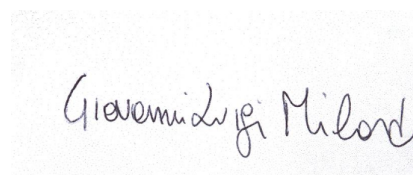 Giovanni Luigi Milord